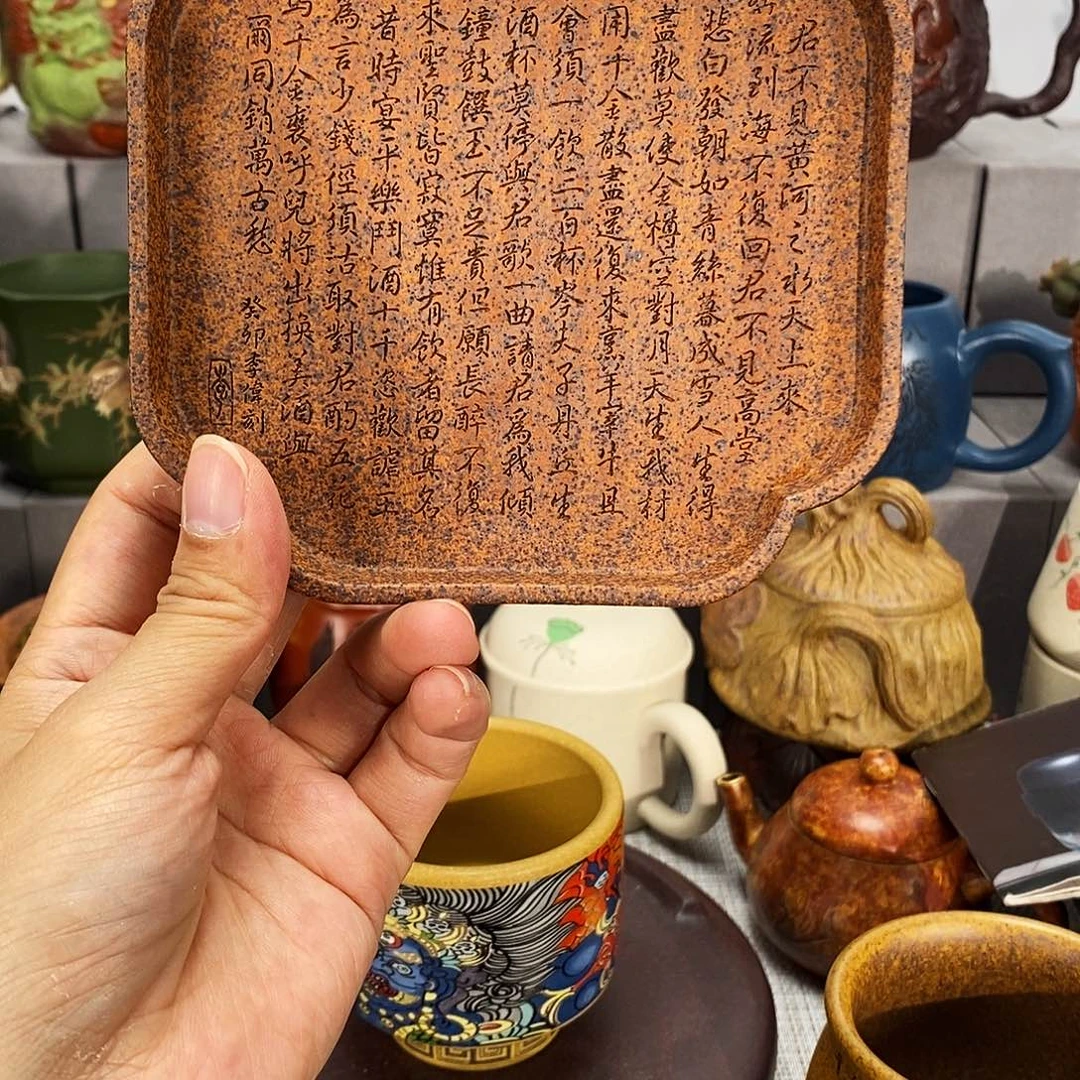 君不見黃河之水天上來
流到海不復回君不見高堂
悲白發朝如青絲暮成雪人生得
盡歡莫使金樽空對月天生我材
用千金散盡還復來烹羊宰牛且
會須一飲三百杯岑夫子丹丘生
酒杯莫停與君歌一曲請君為我傾
鐘鼓饌玉不足貴但願長醉不復
來聖賢皆寂寞惟有飲者留其名
昔時宴平樂鬥酒十千恣歡謔主
為言少錢徑須沽取對君酌五花
馬千金裘呼兒將出換美酒與
爾同銷萬古愁
癸卯李偉刻